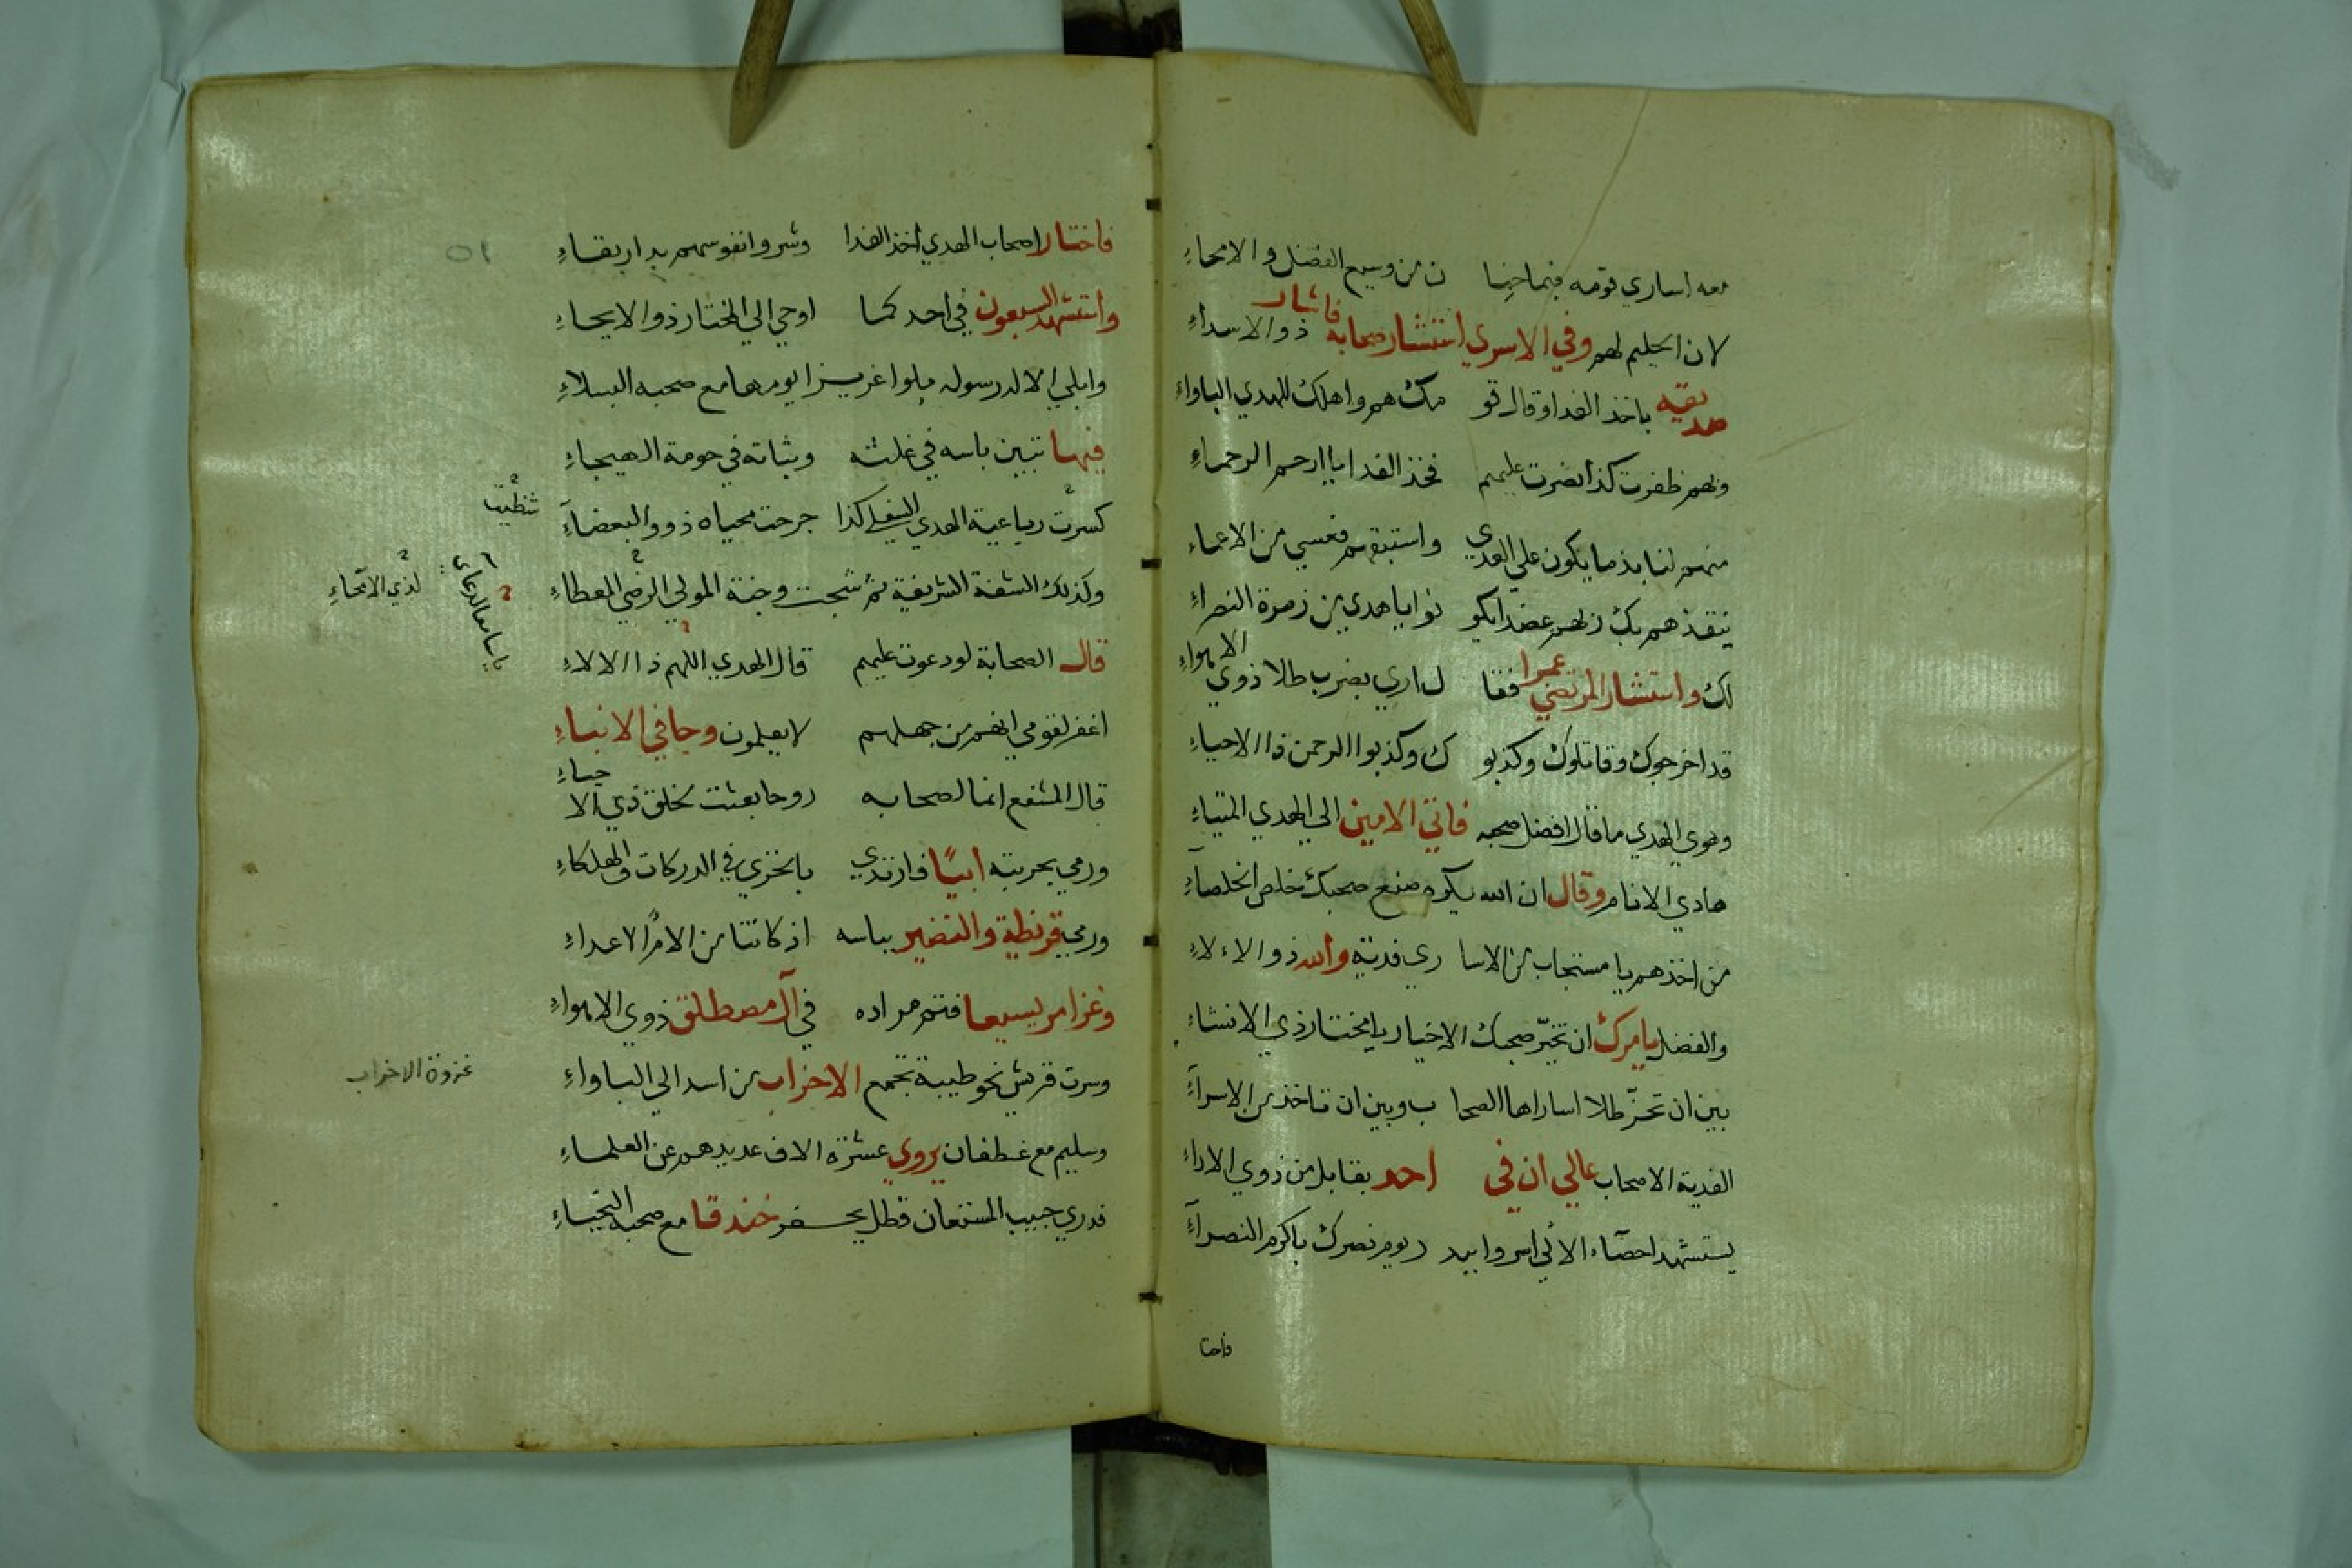 معه اساري قومه فبما حبا ن من وسيع الفضل والامحاء
لان الحليم لهم وفي الاسري استشار صحابه فاشار ذو الاسداء
صديقه باخذ الفدا وقال قو مك هم واهلك للهدي الباواء
وبهم ظفرت كذا نصرت عليهم فخذ الفدا يا ارحم الرحماء
منهم لنا بذ ما يكون على العدي واستبقهم فعسي من الاعماء
ينقذهم بك ربهم عضدا يكو نوا يا هدي من زمرة النصراء
لك واستشار المرتضي عمرا فقا ل اري بضرب طلا ذوي الاهواء
قد اخرجوك وقاتلوك وكذبو ك وكذبوا الرحمن ذا الاحياء
وهوي الهدي ما قال افضل صحبه فاتي الامين الي الهدي
هادي الانام وقال ان الله يكره صنع صحبك مخلص الخلصاء
من اخذهم يا مستجاب من الاسا ري فدية والله ذو الاءلاء
والفضل يامرك ان تخير صحبك الاخيار يا مختار ذي الانشاء
بين ان تحز طلا اساراها الصحا ب وبين ان تاخذ من الاسراء
الفدية الاصحاب عالي ان في احد يقابل من ذوي الاراء
يستشهد احصاء الالي اسروا ببد ر يوم نصرك باكرم النصراء
فاختا
فاختار اصحاب الهدي اخذ الفدا وشروا نفوسهم بدار بقاء
واستشهد السبعون في احد كما اوحي الي المختار ذو الايحاء
وابلي الاله رسوله بلوا عزيزا يومها مع صحبه البسلاء
فيها تبين باسه في غلثه وثباته في حومة الهيجاء
كسرت رباعية الهدي السفلي كذا جرحت محياه ذووا البعضاء
شظيت
وكذلك الشفة الشريفة ثم شجت وجنة المولي الرضي المعطاء
لذي الامحاء
يا سامعا لدعائي
قال الصحابة لو دعوت عليهم قال الهدي اللهم ذا الالاء
اغفر لقومي انهم من جهلهم لا يعلمون وجا في الانباء
قال المشفع انما لصحابه روحا بعثت لخلق ذي الاحياء
ورمي بحربته ابيا فارتدي بالخزي في الدركات والهلكاء
ورمي قريظة والنضير بباسه اذ كانتا من الام الاعداء
وغزا مريسيعا فتم مراده في آل مصطلق ذوي الاهواء
وسرت قريش نحو طيبة تجمع الاحزاب من اسد الي الباواء
غزوة الاحزاب
وسليم مع غطفان يروي عشرة الاف عديدهم عن العلماء
فدري حبيب المستعان فظل يحفر خندقا مع صحبه النجباء